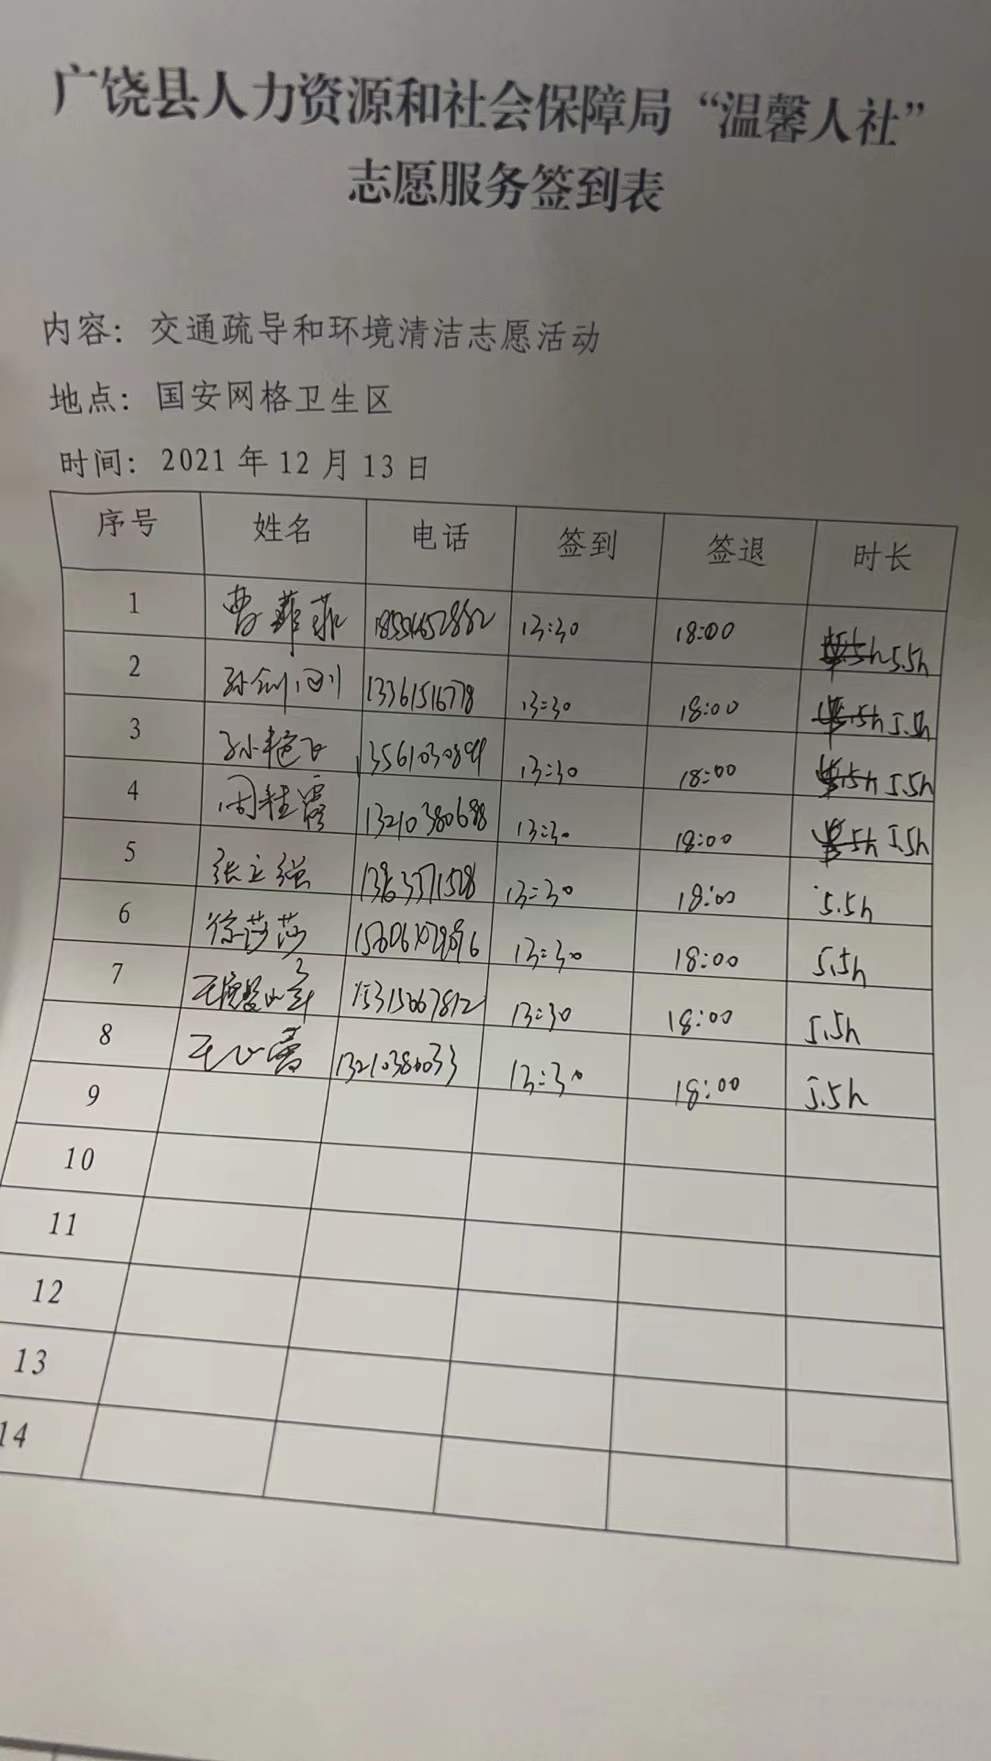 广饶县人力资源和社会保障局“温馨人社”
志愿服务签到表
内容：交通疏导和环境清洁志愿活动
地点：国安网格卫生区
时间：2021年12月13日
序号 姓名 电话 签到 签退 时长
1 曹菲菲 13:30 18:00 5.5h
2 13361516778 13:30 18:00 5.5h
3 孙艳飞 13:30 18:00 5.5h
4 周桂霞 13210380688 13:30 18:00 5.5h
5 张立强 13:30 18:00 5.5h
6 徐莎莎 13:30 18:00 5.5h
7 15315067812 13:30 18:00 5.5h
8 13210380033 13:30 18:00 5.5h
9
10
11
12
13
14